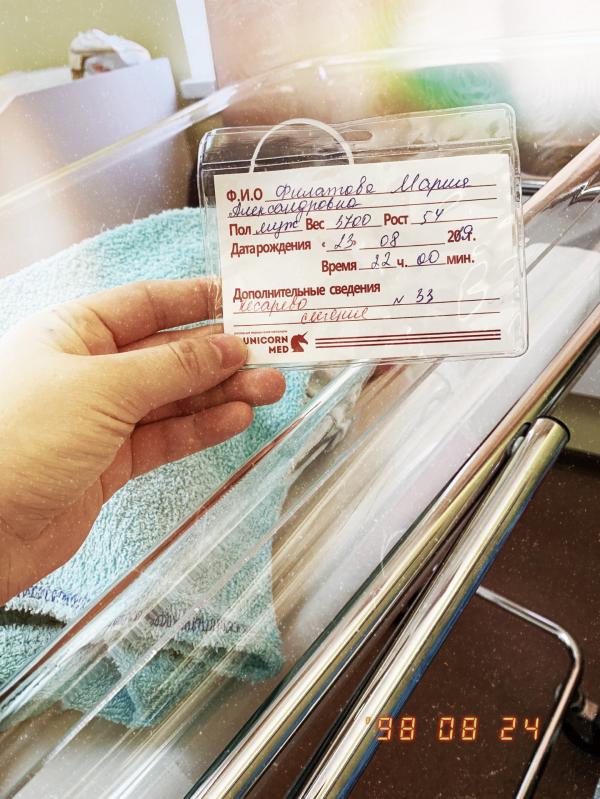 Ф.И.О Филатова Мария
Александровна
Пол муж Вес 3700 Рост 54
Дата рождения «23» 08 2019г.
Время 22 ч. 00 мин.
Дополнительные сведения
кесарево N 33
сечение
UNICORN
MED
'98 08 24